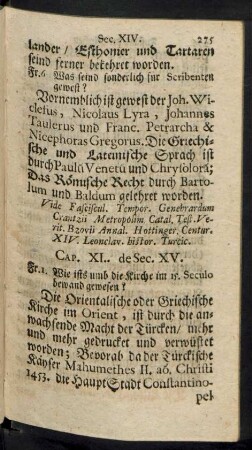 Sec. XIV. 275
lander / Esthonier und Tartaren
seind ferner bekehret worden.
Fr. 6. Was seind sonderlich fur Scribenten
gewest?
Vornemblich ist gewest der Joh. Wi-
clefus, Nicolaus Lyra, Johannes
Taulerus und Franc. Petrarcha &
Nicephoras Gregorus. Die Griechi-
sche und Lateinische Sprach ist
durch Paulũ Venetũ und Chrysolorã;
Das Römische Recht durch Barto-
lum und Baldum gelehret worden.
Vide Fascicul. Tempor. Genebrardum
Crantzii Metropolim Catal. Test. Ve-
rit. Bzovii Annal. Hottinger. Centur.
XIV. Leonclav. histor. Turcic.
CAP. XI.. de Sec. XV.
Fr. 1. Wie ists umb die Kirche im 15. Seculo
bewand gewesen?
Die Orientalische oder Griechische
Kirche im Orient, ist durch die an-
wachsende Macht der Türcken / mehr
und mehr gedrucket und verwüstet
worden; Bevorab da der Türckische
Käyser Mahumethes II. ao. Christi
1453. die Haupt Stadt Constantino-
pel